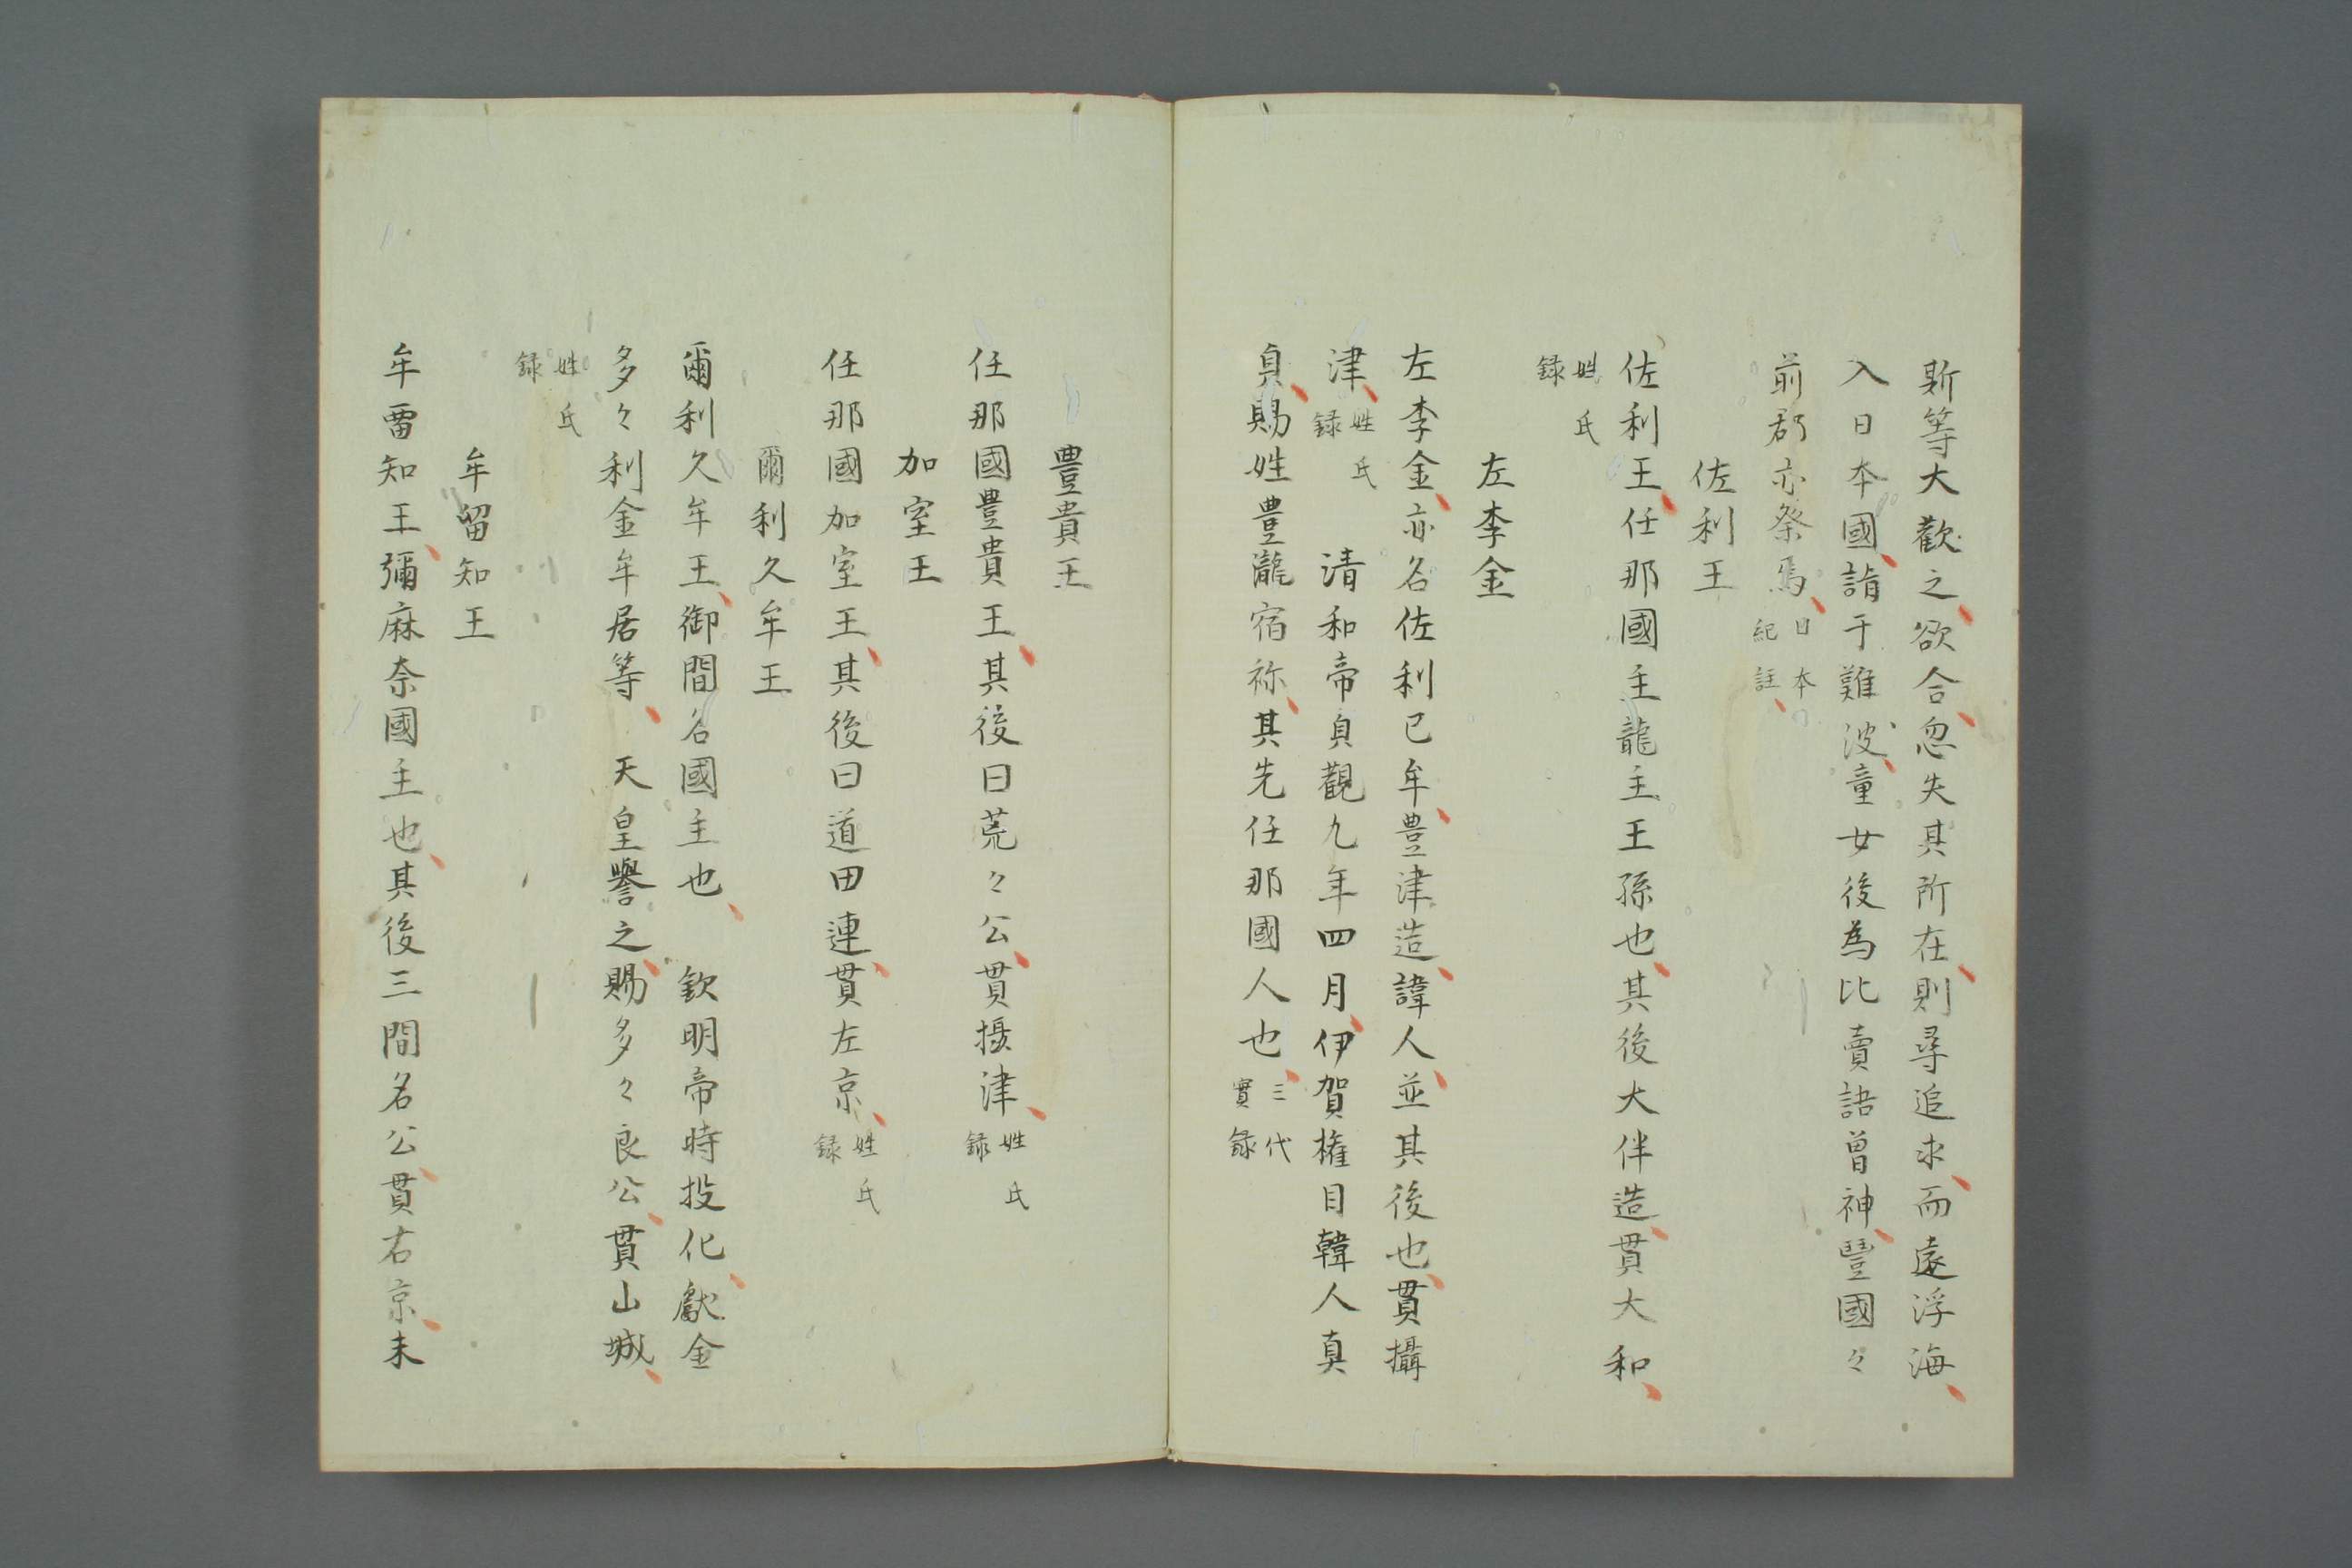 斯等大歡之欲合忽失其所在則尋追求而遠浮海
入日本國詣于難波童女後為比賣語曾神豐國々
前郡亦祭焉日本紀註
佐利王
佐利王任那國主龍主王孫也其後大伴造貫大和
姓氏録
左李金
左李金亦名佐利已牟豊津造諱人並其後也貫攝
津姓氏録 清和帝貞觀九年四月伊賀権目韓人真
貞賜姓豊瀧宿祢其先任那國人也三代實録
豊貴王
任那國豊貴王其後曰荒々公貫摂津姓氏録
加室王
任那國加室王其後曰道田連貫左京姓氏録
爾利久牟王
爾利久牟王御間名國主也 欽明帝時投化獻金
多々利金牟居等 天皇譽之賜多々良公貫山城
姓氏録
牟留知王
牟畱知王彌麻奈國主也其後三間名公貫右京未